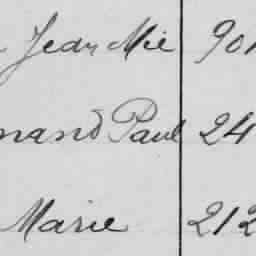 Jean Mie 901
nand Paul 24
Marie 212